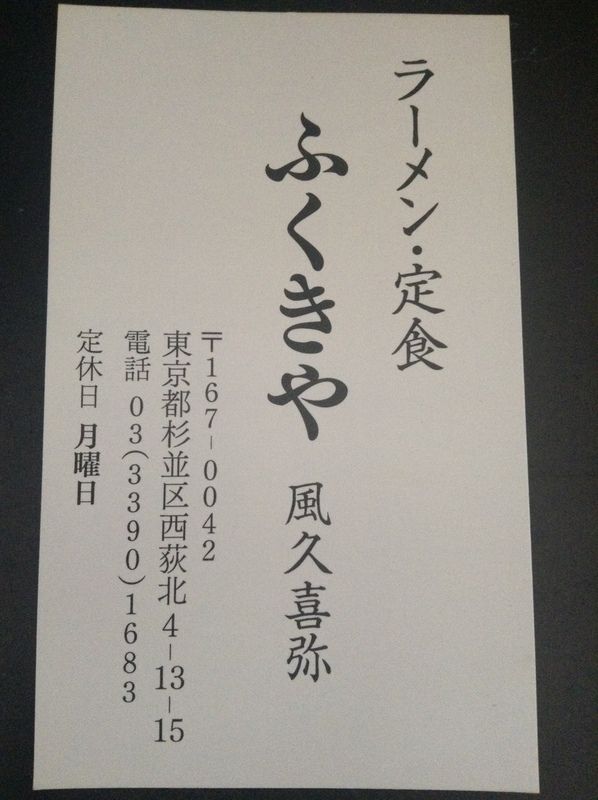 ラーメン・定食
ふくきや 風久喜弥
〒167-0042
東京都杉並区西荻北4-13-15
電話 03(3390)1683
定休日 月曜日